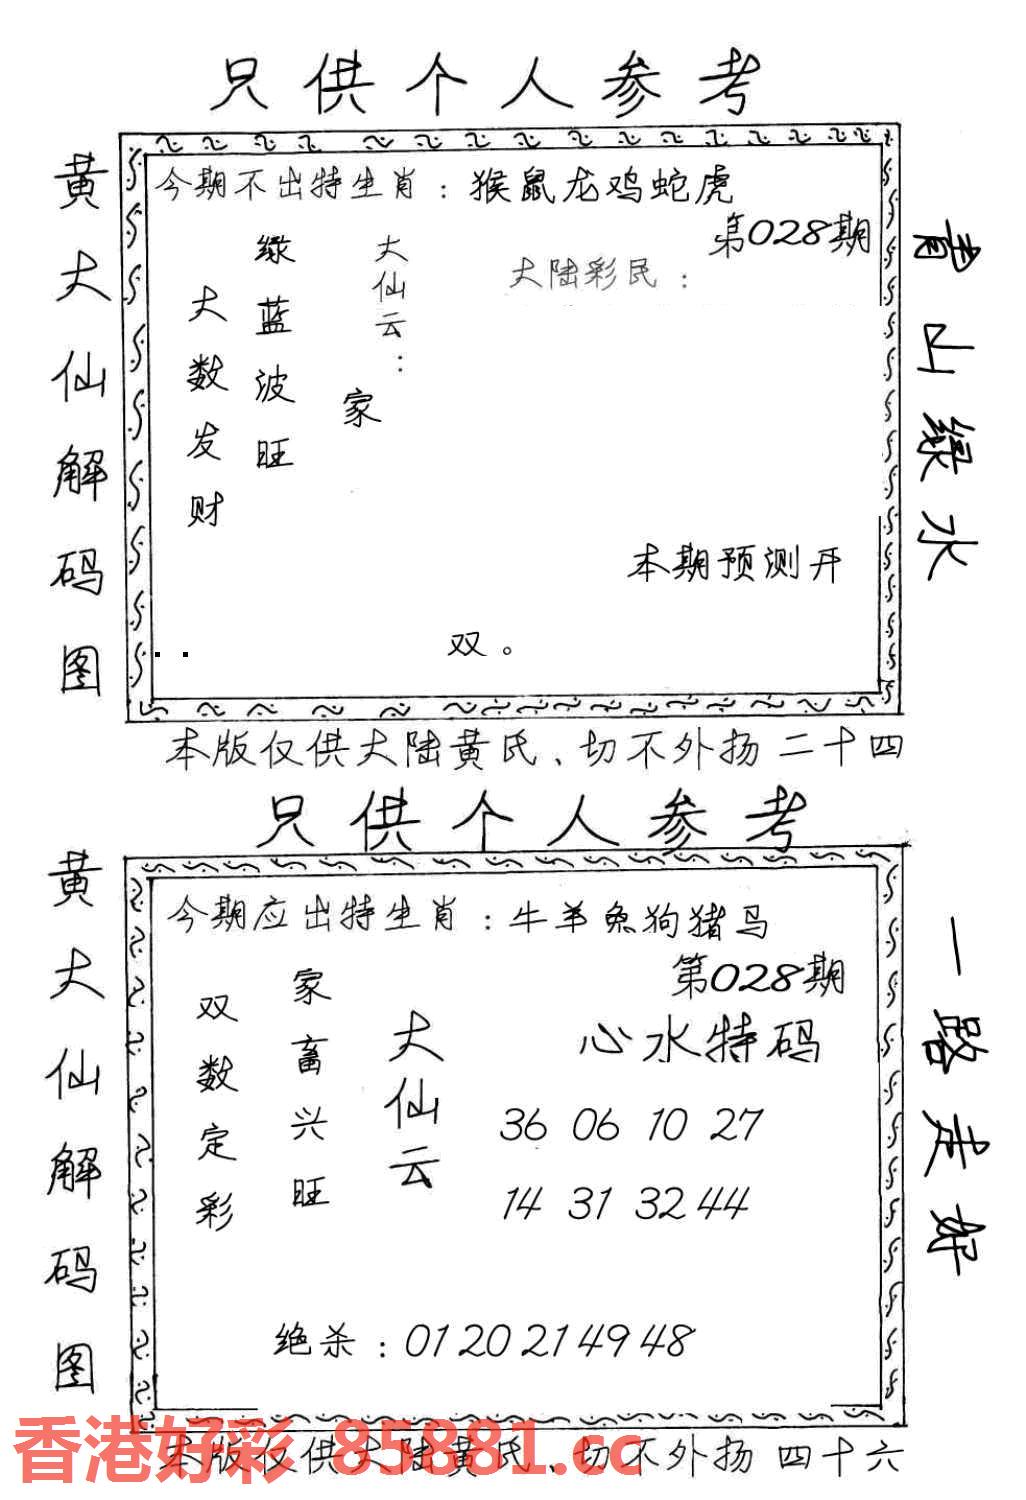 只供个人参考
黄大仙解码图
今期不出特生肖：猴鼠龙鸡蛇虎
第028期
大陆彩民：
大仙云：
家
绿蓝波旺
大数发财
本期预测开
双。
青山绿水
本版仅供大陆黄氏、切不外扬 二十四
只供个人参考
黄大仙解码图
今期应出特生肖：牛羊兔狗猪马
第028期
心水特码
36 06 10 27
14 31 32 44
大仙云
家畜兴旺
双数定彩
绝杀：01 20 21 49 48
一路走好
本版仅供大陆黄氏、切不外扬 四十六
香港好彩 85881.cc